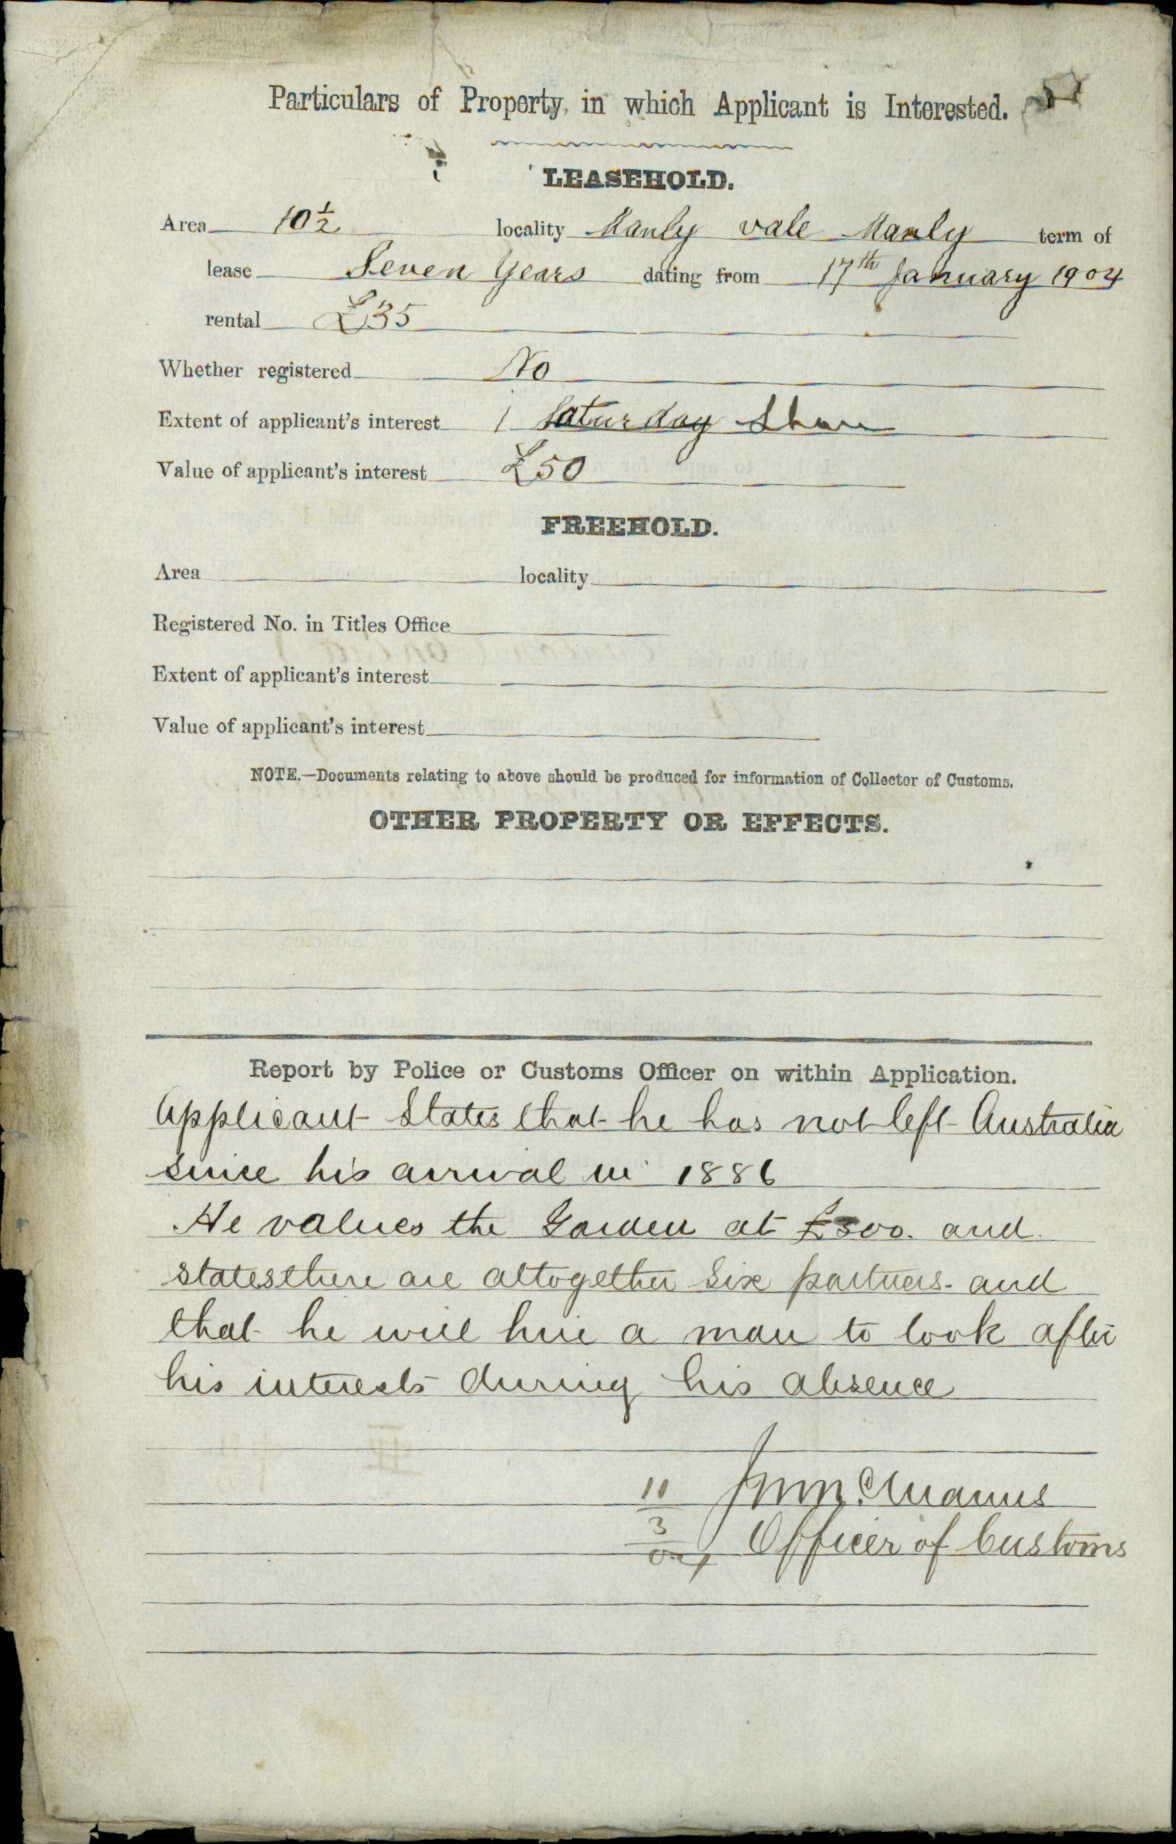 Particulars of Property in which Applicant is Interested.
LEASEHOLD.
Area 10½ locality Manly vale Manly term of
lease Seven Years dating from 17th January 1904
rental £35
Whether registered No
Extent of applicant's interest 1 Saturday Share
Value of applicant's interest £50
FREEHOLD.
Area locality
Registered No. in Titles Office
Extent of applicant's interest
Value of applicant's interest
NOTE.—Documents relating to above should be produced for information of Collector of Customs.
OTHER PROPERTY OR EFFECTS.
Report by Police or Customs Officer on within Application.
Applicant States that he has not left Australia
since his arrival in 1886
He values the Garden at £300. and
states there are altogether Six partners. and
that he will hire a man to look after
his interests during his absence
11/3/04 McManus
Officer of Customs